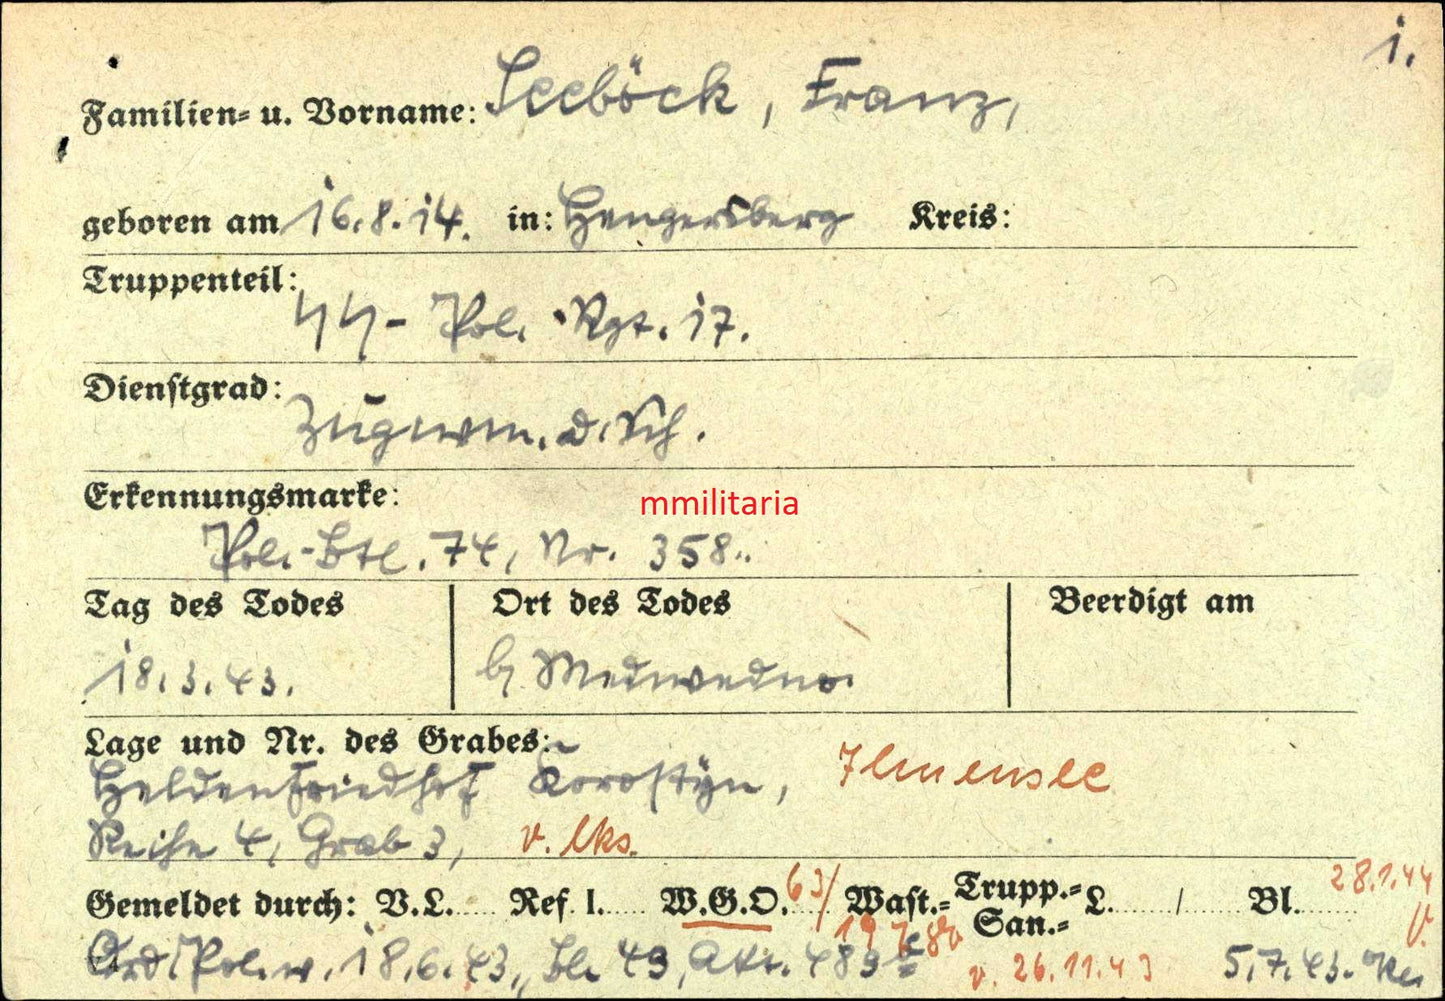 i.
Familien- u. Vorname: Seeböck, Franz,
geboren am 16.8.14. in: Hengersberg Kreis:
Truppenteil:
SS-Pol. Rgt. 17.
Dienstgrad:
Zugwm. d. Sch.
Erkennungsmarke:
mmilitaria
Pol.-Btl. 74, Nr. 358.
Tag des Todes Ort des Todes Beerdigt am
18.3.43. b/ Medwedno.
Lage und Nr. des Grabes:
Heldenfriedhof Korostyn, Ilmensee
Reihe 4, Grab 3, v. lks.
Gemeldet durch: V.L...... Ref I...... W.G.O. 63/ Wast.- Trupp.- San.- L......../........ Bl......... 28.1.44
Ord. Pol. v. 18.6.43, Bl. 49, Akt. 489 v. 26.11.43 5.7.43.